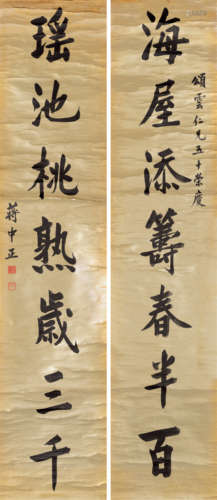 頌雲仁兄五十榮慶
海屋添籌春半百
瑶池桃熟歲三千
蔣中正